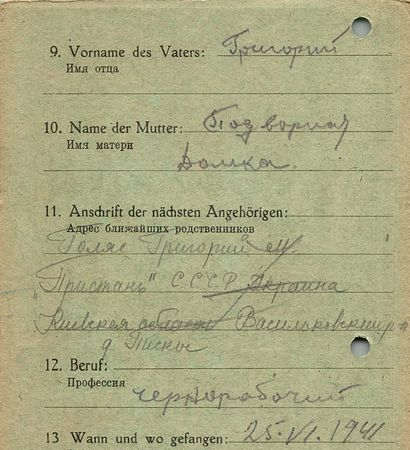 9. Vorname des Vaters: Григорий
Имя отца
10. Name der Mutter: Подворная
Имя матери
Домка.
11. Anschrift der nächsten Angehörigen:
Адрес ближайших родственников
Голяс Григорий ст.
"Пристань" С.С.С.Р Украина
Киевская область Васильковский р-н
д Писки
12. Beruf:
Профессия
чернорабочий
13 Wann und wo gefangen: 25.VI.1941